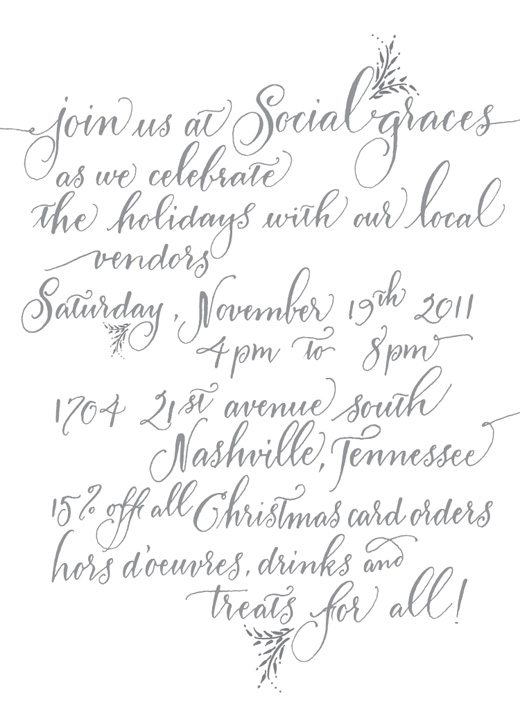 join us at Social graces
as we celebrate
the holidays with our local
vendors
Saturday, November 19th 2011
4pm to 8pm
1704 21st avenue south
Nashville, Tennessee
15% off all Christmas card orders
hors d'oeuvres, drinks and
treats for all!